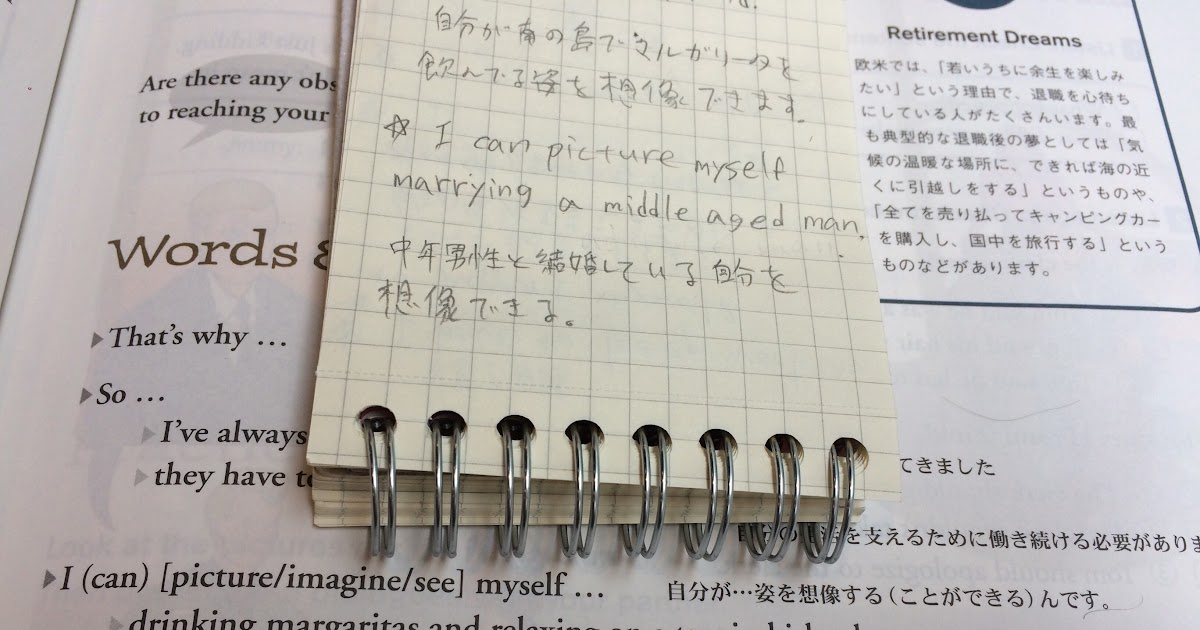 自分が南の島でマルガリータを
飲んでる姿を想像できます。
☆ I can picture myself
marrying a middle aged man.
中年男性と結婚している自分を
想像できる。
Are there any obs
to reaching your
Words &
▶That's why …
▶So …
▶I've always
▶they have to
てきました
を支えるために働き続ける必要があります
▶I (can) [picture/imagine/see] myself …
自分が…姿を想像する(ことができる)んです。
▶drinking margaritas and relaxing on a tropical island
Retirement Dreams
欧米では、「若いうちに余生を楽しみ
たい」という理由で、退職を心待ち
にしている人がたくさんいます。最
も典型的な退職後の夢としては「気
候の温暖な場所に、できれば海の近
くに引越しをする」というものや、
「全てを売り払ってキャンピングカー
を購入し、国中を旅行する」という
ものなどがあります。